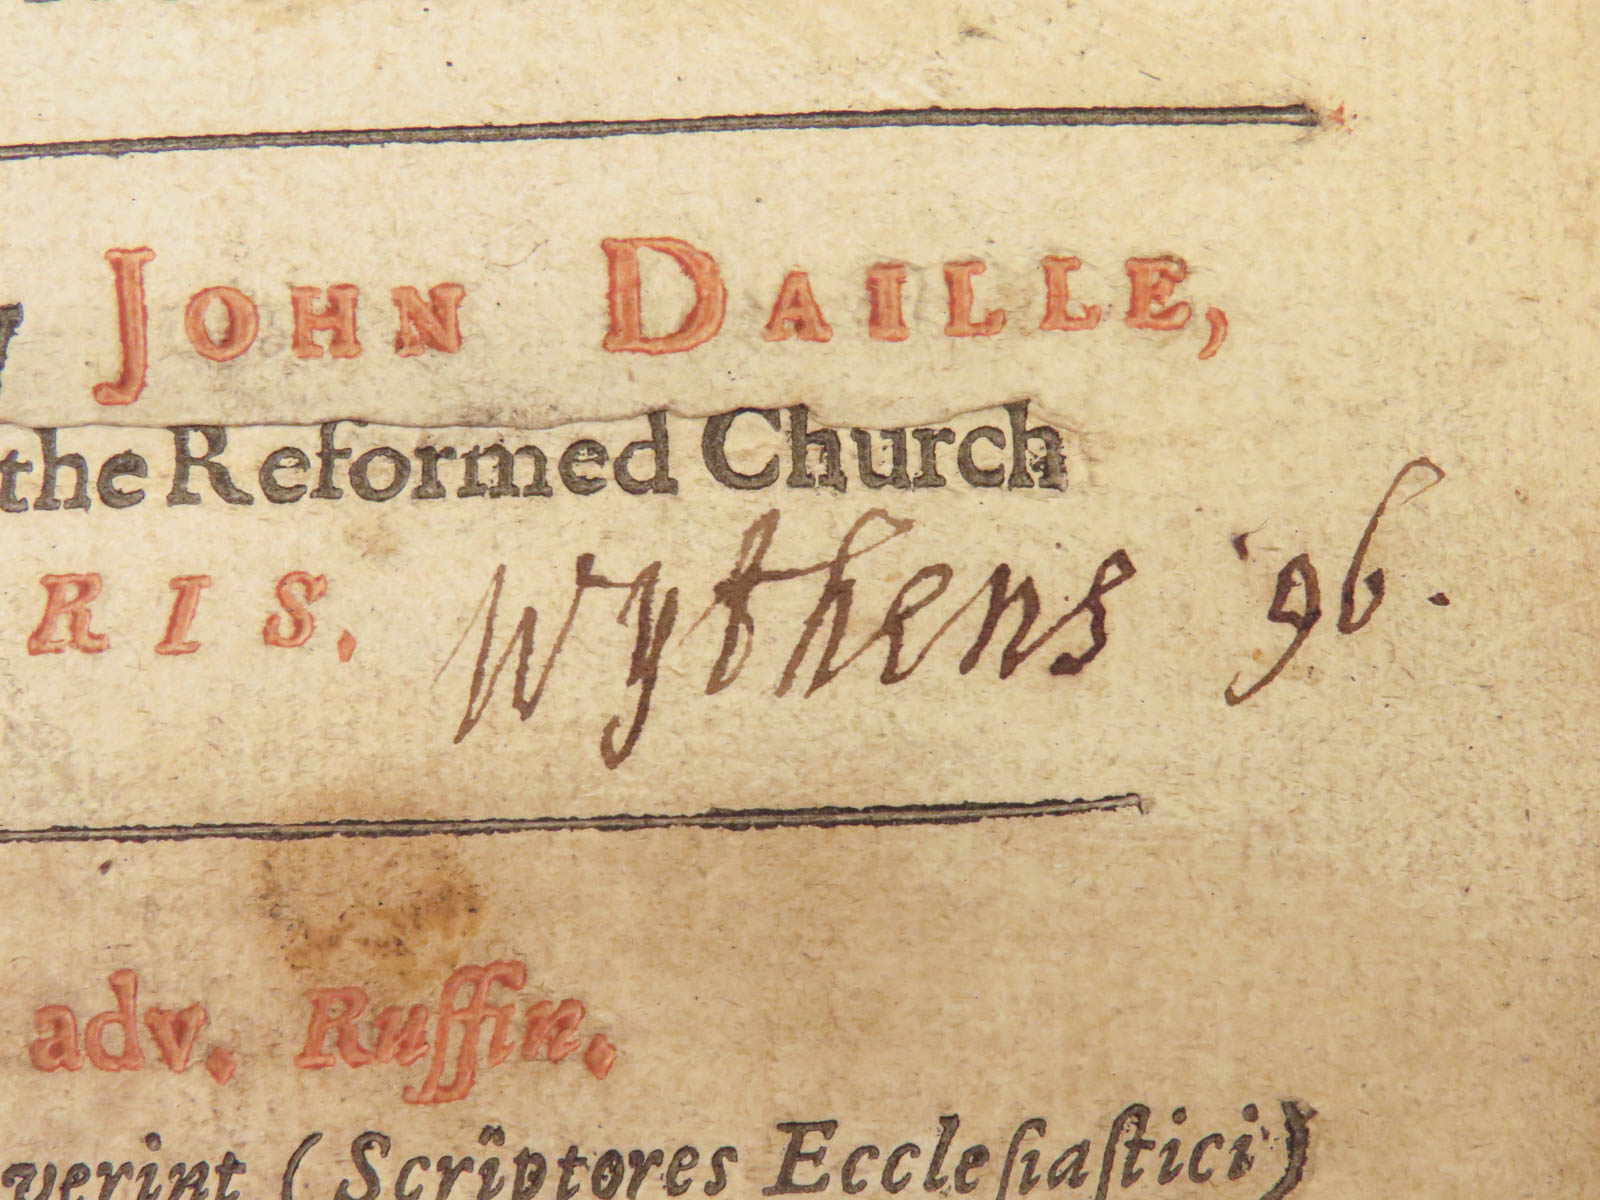 JOHN DAILLE,
the Reformed Church
RIS. Wythens '96.
adv. Ruffin.
verint (Scriptores Eccleſiaſtici)